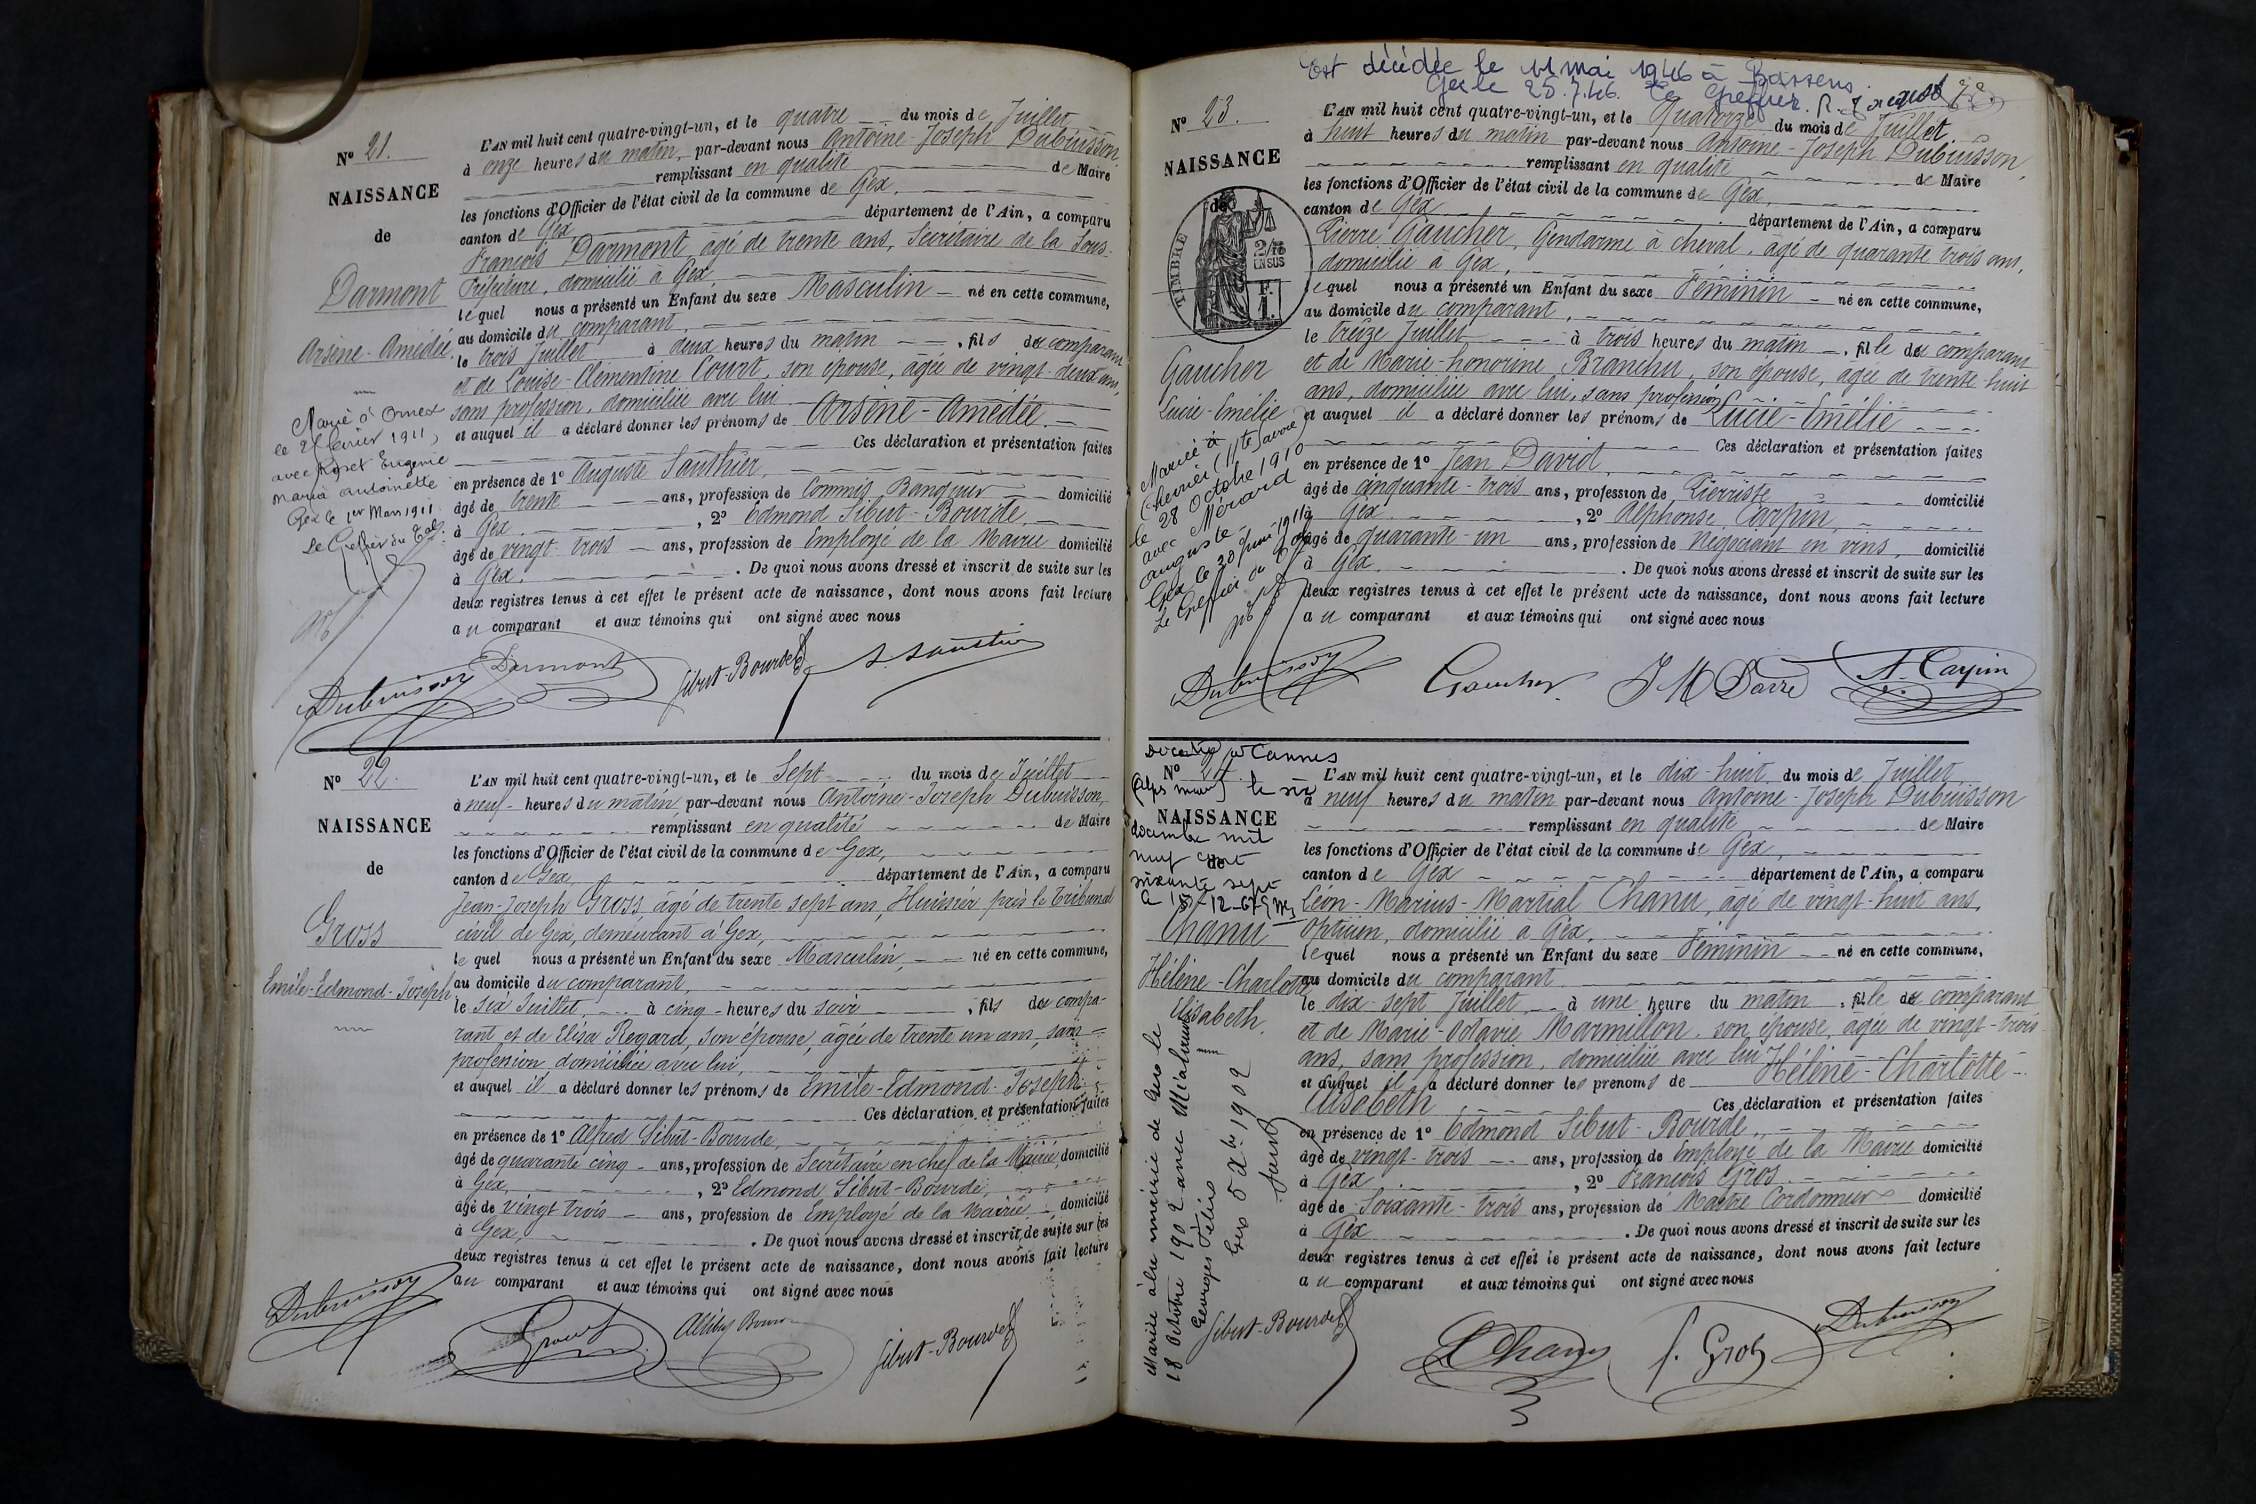 N° 21.
NAISSANCE
de
Darmont
Arsène-Amédée.
Marié à Ornex
le 25 février 1911,
avec Roset Eugénie
Maria Antoinette
Gex le 1er Mars 1911
Le Greffier du
L'AN mil huit cent quatre-vingt-un, et le quatre du mois de Juillet
à onze heures du matin, par-devant nous Antoine-Joseph Dubuisson,
remplissant en qualité de Maire
les fonctions d'Officier de l'état civil de la commune de Gex,
canton de Gex département de l'Ain, a comparu
François Darmont, âgé de trente ans, Secrétaire de la Sous-
Préfecture, domicilié à Gex,
lequel nous a présenté un Enfant du sexe Masculin né en cette commune,
au domicile du comparant,
le trois Juillet à deux heures du matin, fils du comparant
et de Louise-Clémentine Court, son épouse, âgée de vingt-deux ans,
sans profession, domiciliée avec lui
et auquel il a déclaré donner les prénoms de Arsène-Amédée.
Ces déclaration et présentation faites
en présence de 1° Auguste Sauthier,
âgé de trente ans, profession de Commis Banquier domicilié
à Gex, 2° Edmond Sibut-Bourde,
âgé de vingt-trois ans, profession de Employé de la Mairie domicilié
à Gex. De quoi nous avons dressé et inscrit de suite sur les
deux registres tenus à cet effet le présent acte de naissance, dont nous avons fait lecture
au comparant et aux témoins qui ont signé avec nous
Dubuisson Darmont Sibut-Bourde A. Sauthier
N° 22.
NAISSANCE
de
Gross
Emile-Edmond-Joseph
L'AN mil huit cent quatre-vingt-un, et le Sept du mois de Juillet
à neuf heures du matin par-devant nous Antoine-Joseph Dubuisson,
remplissant en qualité de Maire
les fonctions d'Officier de l'état civil de la commune de Gex,
canton de Gex, département de l'Ain, a comparu
Jean-Joseph Gross, âgé de trente sept ans, Huissier près le Tribunal
civil de Gex, demeurant à Gex,
lequel nous a présenté un Enfant du sexe Masculin, né en cette commune,
au domicile du comparant,
le Six Juillet, à cinq heures du soir, fils du compa-
rant et de Elisa Regard, son épouse, âgée de trente un ans, sans
profession domiciliée avec lui,
et auquel il a déclaré donner les prénoms de Emile-Edmond-Joseph
Ces déclaration et présentation faites
en présence de 1° Alfred Sibut-Bourde,
âgé de quarante cinq ans, profession de Secrétaire en chef de la Mairie, domicilié
à Gex, 2° Edmond Sibut-Bourde,
âgé de vingt trois ans, profession de Employé de la Mairie domicilié
à Gex, De quoi nous avons dressé et inscrit de suite sur les
deux registres tenus à cet effet le présent acte de naissance, dont nous avons fait lecture
au comparant et aux témoins qui ont signé avec nous
Dubuisson Sibut-Bourde
Est décédée le 11 mai 1946 à Bassens.
Gex le 25.7.46. Le Greffier.
N° 23.
NAISSANCE
de
TIMBRE
2/10 EN SUS
F. 1.
Gaucher
Lucie-Emélie
Mariée à
Chevrier (Hte Savoie)
le 28 Octobre 1910
avec Mérard
Auguste
Gex le 20 Juin 1911
Le Greffier du
L'AN mil huit cent quatre-vingt-un, et le Quatorze du mois de Juillet
à huit heures du matin par-devant nous Antoine-Joseph Dubuisson,
remplissant en qualité de Maire
les fonctions d'Officier de l'état civil de la commune de Gex,
canton de Gex département de l'Ain, a comparu
Pierre Gaucher, Gendarme à cheval, âgé de quarante trois ans,
domicilié à Gex,
lequel nous a présenté un Enfant du sexe Féminin né en cette commune,
au domicile du comparant,
le treize Juillet à trois heures du matin, fille du comparant
et de Marie-honorine Branchu, son épouse, âgée de trente-huit
ans, domiciliée avec lui, sans profession
et auquel il a déclaré donner les prénoms de Lucie-Emélie
Ces déclaration et présentation faites
en présence de 1° Jean David,
âgé de cinquante-trois ans, profession de Pierriste domicilié
à Gex, 2° Alphonse Carpin,
âgé de quarante-un ans, profession de Négociant en vins, domicilié
à Gex. De quoi nous avons dressé et inscrit de suite sur les
deux registres tenus à cet effet le présent acte de naissance, dont nous avons fait lecture
au comparant et aux témoins qui ont signé avec nous
Dubuisson Gaucher A. Carpin
Décédée à Cannes
N° 24.
(Alpes Marit) le six
NAISSANCE
décembre mil
neuf cent
de
soixante sept
Chanu
Hélène-Charlotte
Elisabeth.
Mariée à la mairie de Gex le
18 Octobre 1902 avec
Georges Félix
Gex 5 Xbre 1902
L'AN mil huit cent quatre-vingt-un, et le dix-huit du mois de Juillet
à neuf heures du matin par-devant nous Antoine-Joseph Dubuisson
remplissant en qualité de Maire
les fonctions d'Officier de l'état civil de la commune de Gex,
canton de Gex département de l'Ain, a comparu
Léon-Marius-Martial Chanu, âgé de vingt-huit ans,
Opticien, domicilié à Gex,
lequel nous a présenté un Enfant du sexe Féminin né en cette commune,
au domicile du comparant
le dix-sept Juillet à une heure du matin, fille du comparant
et de Marie-Octavie Marmillon, son épouse, âgée de vingt-trois
ans, sans profession, domiciliée avec lui
et auquel il a déclaré donner les prénoms de Hélène-Charlotte-
Elisabeth Ces déclaration et présentation faites
en présence de 1° Edmond Sibut-Bourde,
âgé de vingt-trois ans, profession de Employé de la Mairie domicilié
à Gex, 2° François Gros
âgé de Soixante-trois ans, profession de Maître Cordonnier domicilié
à Gex. De quoi nous avons dressé et inscrit de suite sur les
deux registres tenus à cet effet le présent acte de naissance, dont nous avons fait lecture
au comparant et aux témoins qui ont signé avec nous
Sibut-Bourde L Chanu f. Gros Dubuisson